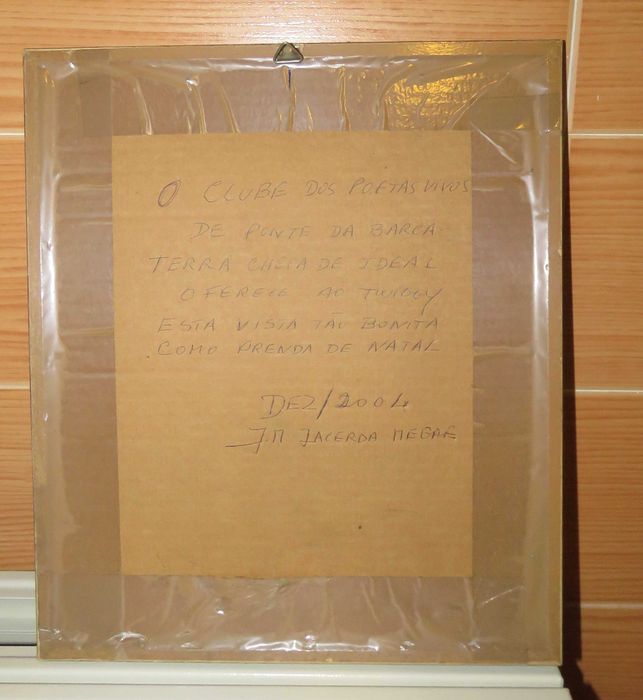 O CLUBE DOS POETAS VIVOS
DE PONTE DA BARCA
TERRA CHEIA DE IDEAL
OFERECE AO
ESTA VISTA TÃO BONITA
COMO PRENDA DE NATAL
DEZ/2004
J.M LACERDA MEGRE